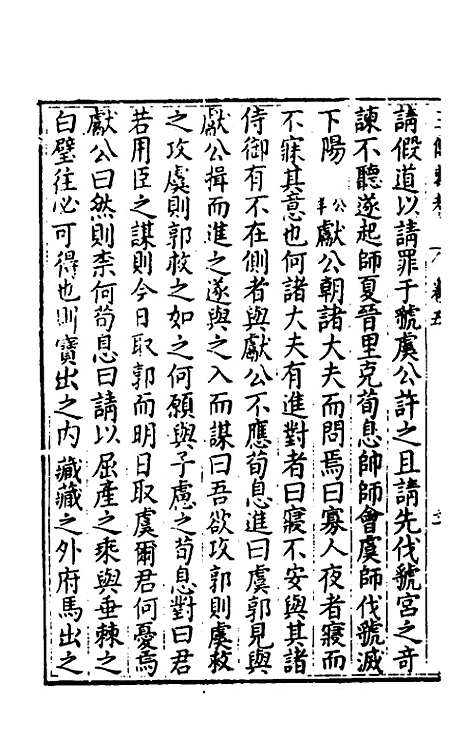 請假道以請罪于虢虞公許之且請先伐虢宮之奇
諫不聽遂起師夏晉里克荀息帥師會虞師伐虢滅
下陽 公羊 獻公朝諸大夫而問焉曰寡人夜者寢而
不寐其意也何諸大夫有進對者曰寢不安與其諸
侍御有不在側者與獻公不應荀息進曰虞郭見與
獻公揖而進之遂與之入而謀曰吾欲攻郭則虞救
之攻虞則郭救之如之何願與子慮之荀息對曰君
若用臣之謀則今日取郭而明日取虞爾君何憂焉
獻公曰然則柰何荀息曰請以屈產之乘與垂棘之
白璧往必可得也則寶出之內藏藏之外府馬出之